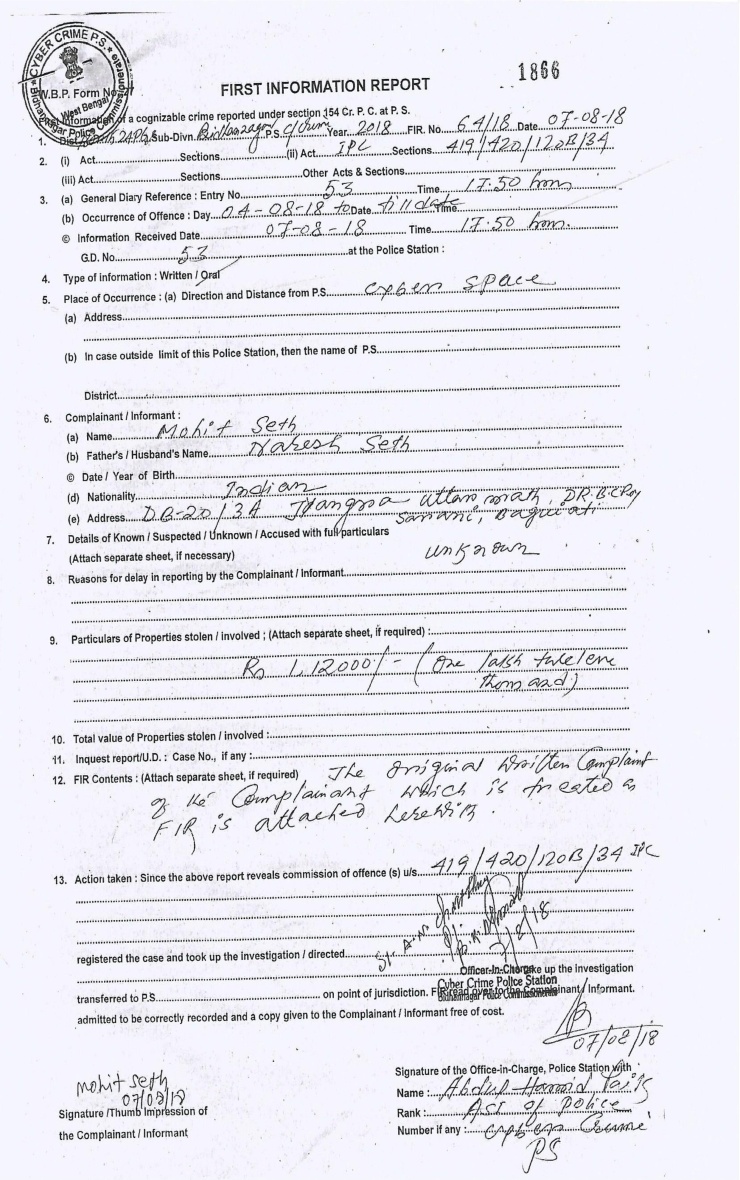 CYBER CRIME P.S.
Bidhannagar Police Commissionerate
West Bengal
1866
W.B.P. Form No
FIRST INFORMATION REPORT
First Information of a cognizable crime reported under section 154 Cr. P. C. at P. S.
1. Dist. North 24 Pgs Sub-Divn. Bidhannagar P.S. C/Crime Year 2018 FIR. No. 64/18 Date 07-08-18
2. (i) Act Sections (ii) Act IPC Sections 419/420/120B/34
(iii) Act Sections Other Acts & Sections
3. (a) General Diary Reference : Entry No. 53 Time 17.50 hrs
(b) Occurrence of Offence : Day 04-08-18 to Date till date Time
© Information Received Date 07-08-18 Time 17.50 hrs.
G.D. No. 53 at the Police Station :
4. Type of information : Written / Oral
5. Place of Occurrence : (a) Direction and Distance from P.S. cyber space
(a) Address
(b) In case outside limit of this Police Station, then the name of P.S.
District
6. Complainant / Informant :
(a) Name Mohit Seth
(b) Father's / Husband's Name Naresh Seth
© Date / Year of Birth
(d) Nationality Indian
(e) Address DB-20/3A Jhangra Uttar math, DR. B.C Roy
Sarani, Baguiati
7. Details of Known / Suspected / Unknown / Accused with full particulars
(Attach separate sheet, if necessary) unknown
8. Reasons for delay in reporting by the Complainant / Informant
9. Particulars of Properties stolen / involved ; (Attach separate sheet, if required) :
Rs 1,12000/- (One lakh twelve
thousand)
10. Total value of Properties stolen / involved :
11. Inquest report/U.D. : Case No., if any :
12. FIR Contents : (Attach separate sheet, if required) The original written Complaint
of the Complainant which is treated as
FIR is attached herewith.
13. Action taken : Since the above report reveals commission of offence (s) u/s. 419/420/120B/34 IPC
7/8/18
registered the case and took up the investigation / directed
Officer-In-Charge take up the investigation
Cyber Crime Police Station
Bidhannagar Police Commissionerate
transferred to P.S. on point of jurisdiction. FIR read over to the Complainant / Informant.
admitted to be correctly recorded and a copy given to the Complainant / Informant free of cost.
07/08/18
mohit seth
07/08/18
Signature /Thumb Impression of
the Complainant / Informant
Signature of the Office-in-Charge, Police Station with
Name : Abdul Hamid
Rank : ASI of Police
Number if any : Cyber Crime
PS